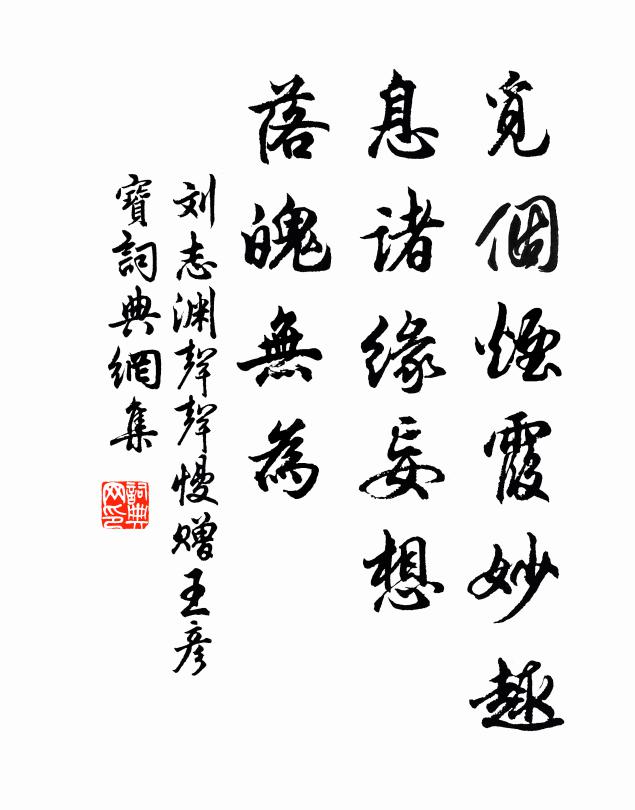 覓個煙霞妙趣
息諸緣妄想
落魄無為
刘志渊聲聲慢赠王彦
寶詞典網集
詞典
网印